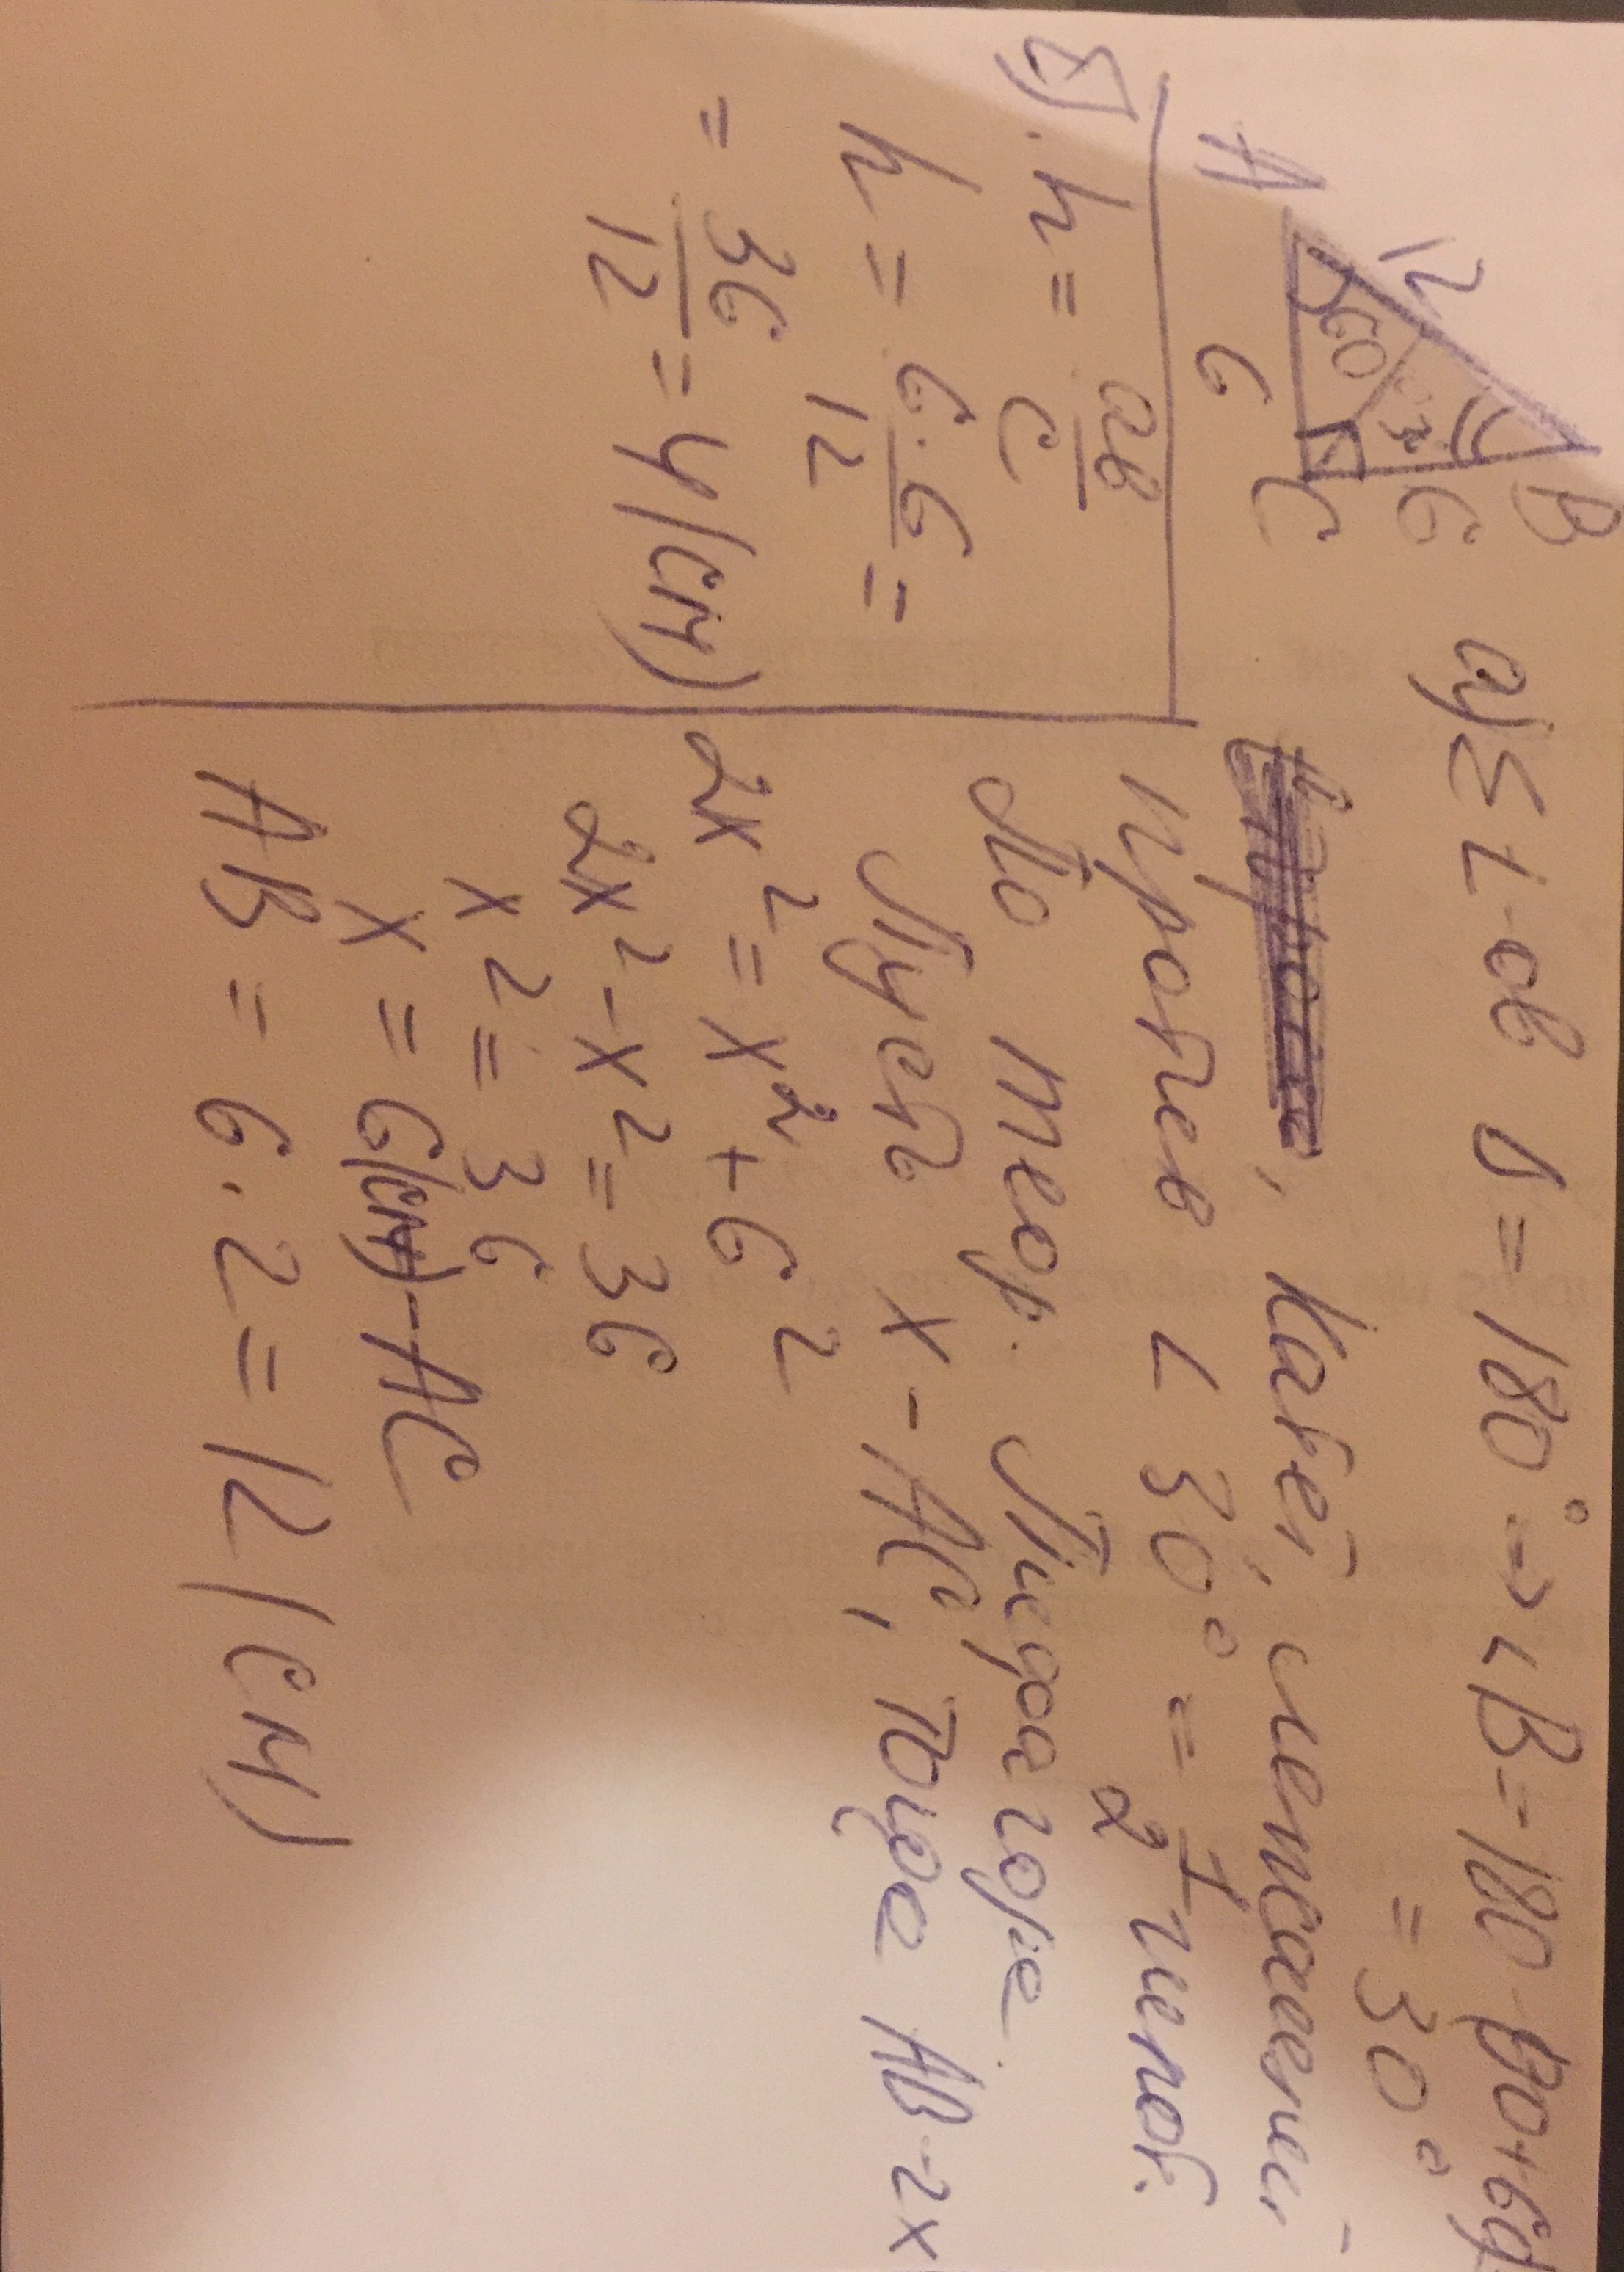 B
12 6
60
A 6 C
а) Σ ∠-ов Δ = 180° → ∠B = 180-(90+60)
= 30°
, катет, лежащий
против ∠ 30° = 1/2 гипот.
По теор. Пифагора
Пусть x - AC, тогда AB - 2x
2x² = x² + 6²
2x² - x² = 36
x² = 36
x = 6(см) - AC
AB = 6 · 2 = 12 (см)
б). h = ab/c
h = 6·6/12 =
= 36/12 = 4 (см)